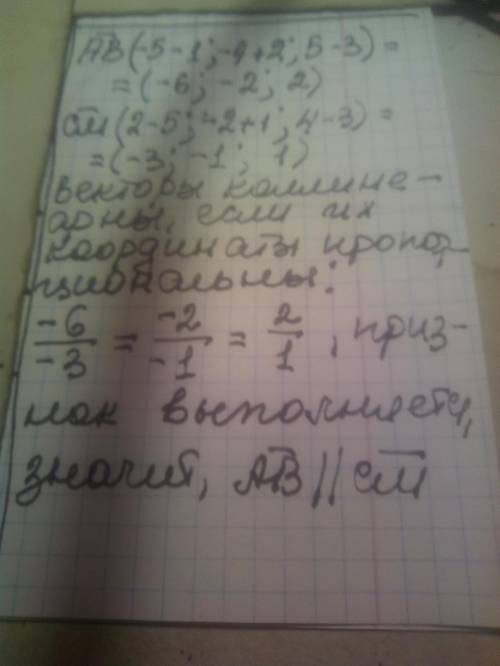 AB(-5-1; -4+2; 5-3) =
= (-6; -2; 2)
CM(2-5; -2+1; 4-3) =
= (-3; -1; 1)
Векторы коллине-
арны, если их
координаты пропор-
циональны:
-6/-3 = -2/-1 = 2/1, приз-
нак выполняетс,
значит, AB || CM